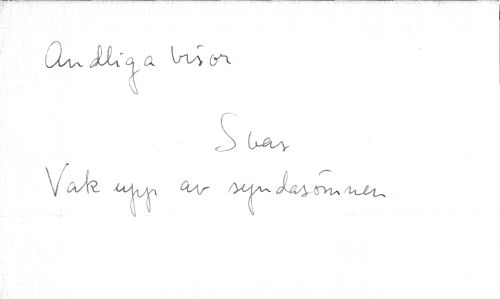 Andliga visor
Svar
Vak upp av syndasömnen